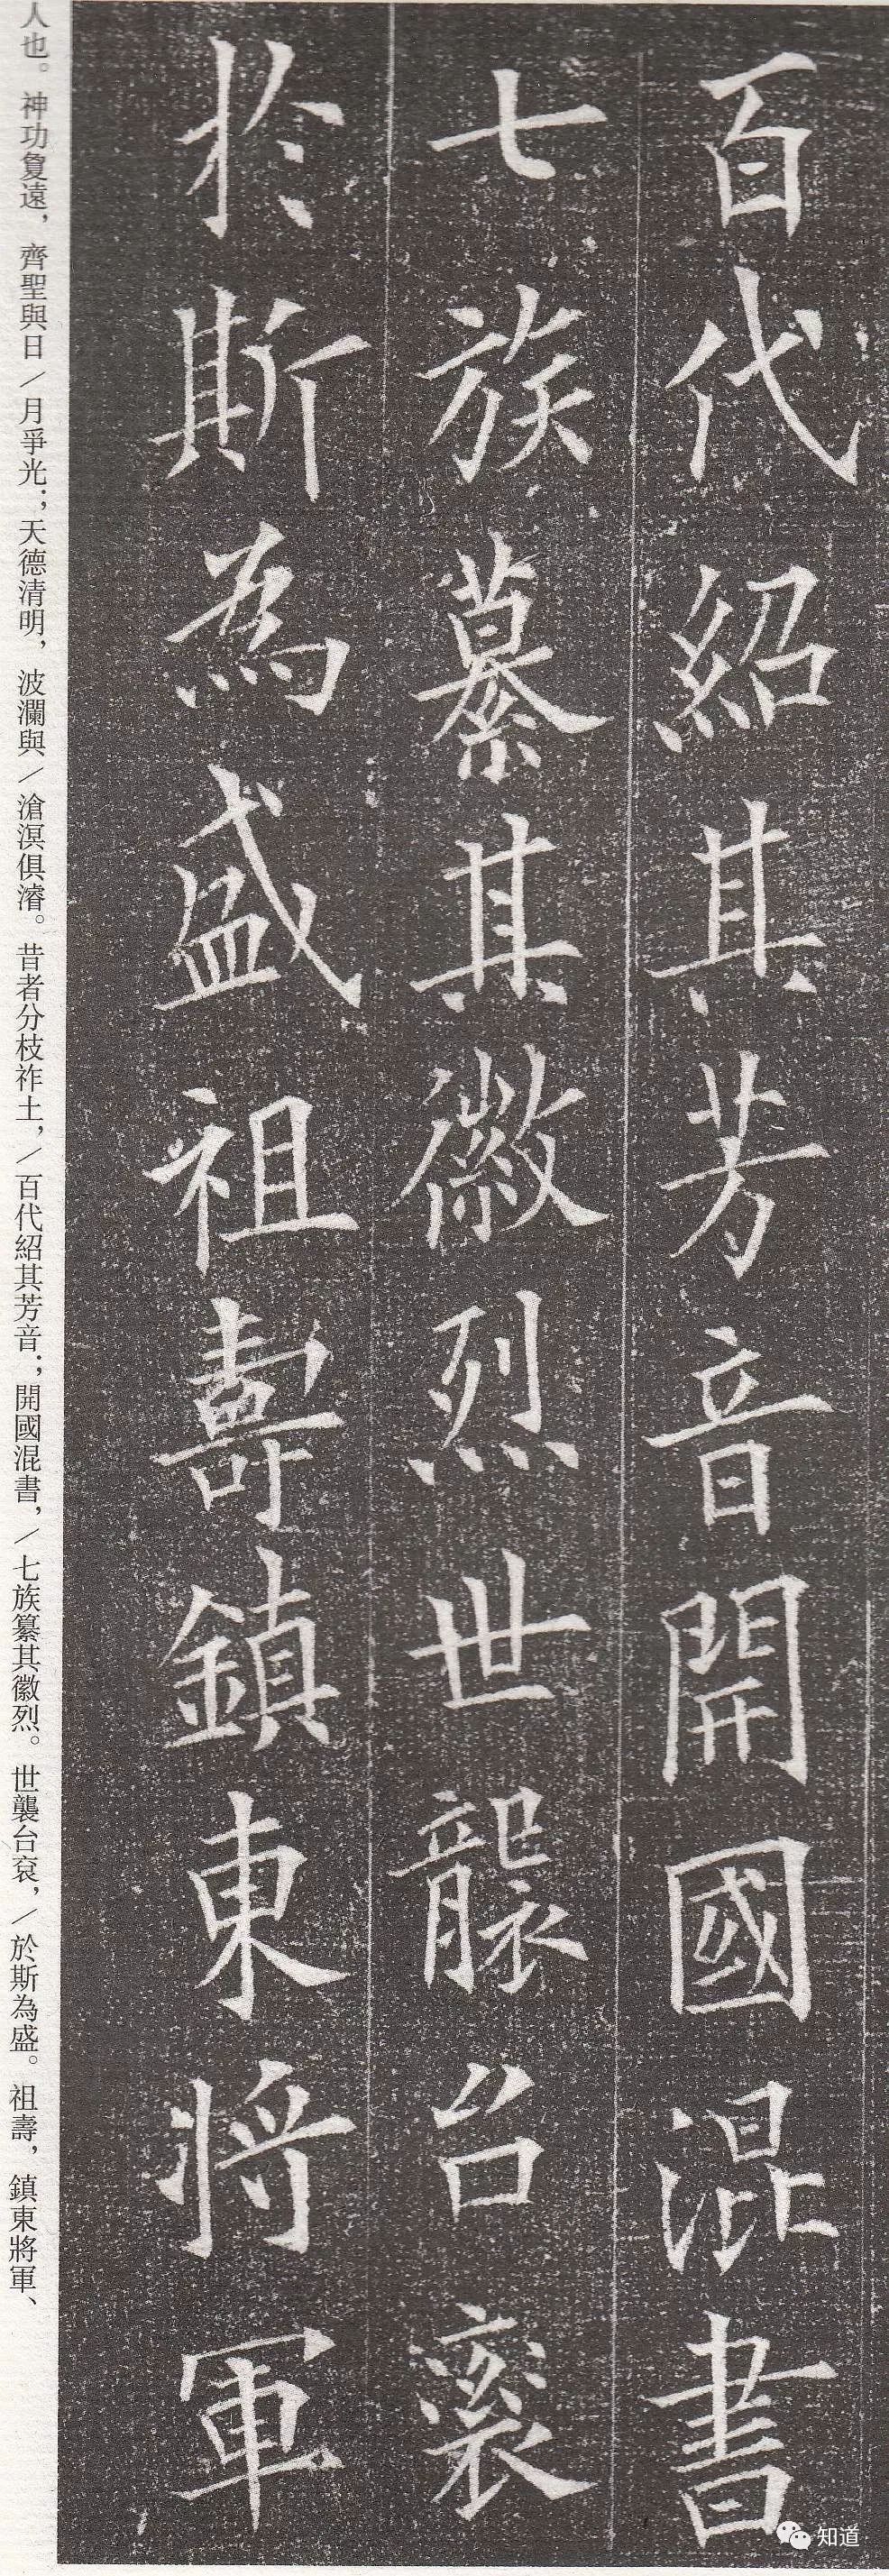 百代紹其芳音開國混書
七族纂其徽烈世襲台袞
於斯為盛祖壽鎮東將軍
人也。神功敻遠，齊聖與日／月爭光；天德清明，波瀾與／滄溟俱濬。昔者分枝祚土，／百代紹其芳音；開國混書，／七族纂其徽烈。世襲台袞，／於斯為盛。祖壽，鎮東將軍、
知道